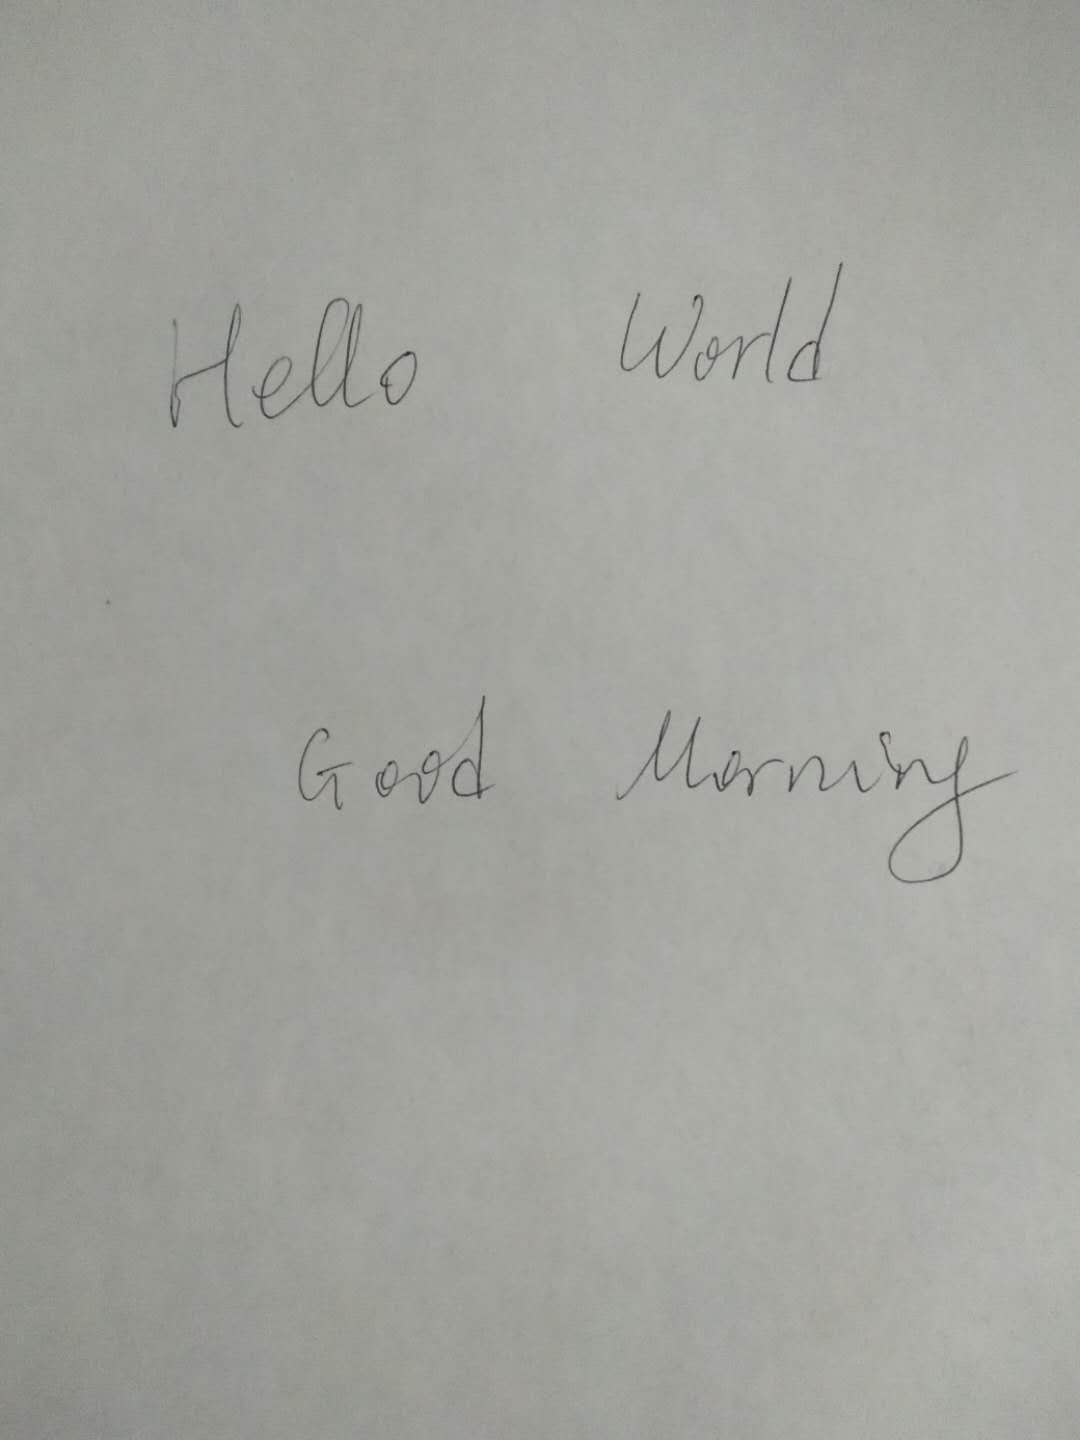 Hello World
Good Morning